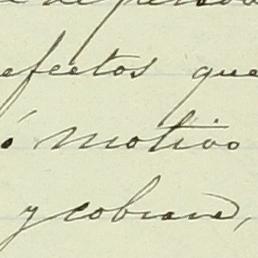 de perso
efectos que
ó motivo
y cobrara,